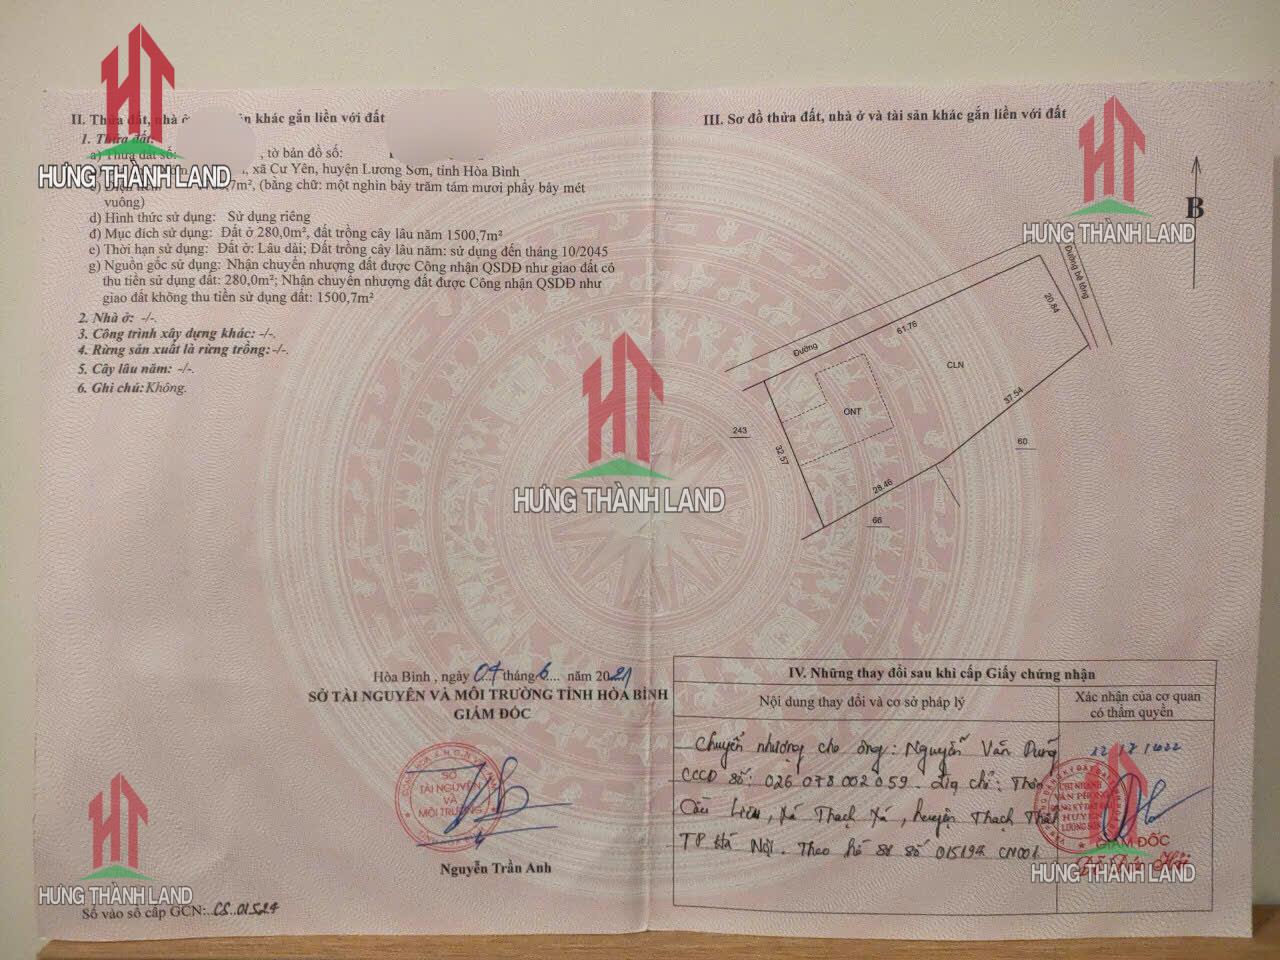 II. Thửa đất, nhà ở khác gắn liền với đất
1. Thửa đất:
a) Thửa đất số: , tờ bản đồ số:
, xã Cư Yên, huyện Lương Sơn, tỉnh Hòa Bình
7m², (bằng chữ: một nghìn bảy trăm tám mươi phẩy bảy mét
vuông)
d) Hình thức sử dụng: Sử dụng riêng
đ) Mục đích sử dụng: Đất ở 280,0m², đất trồng cây lâu năm 1500,7m²
e) Thời hạn sử dụng: Đất ở: Lâu dài; Đất trồng cây lâu năm: sử dụng đến tháng 10/2045
g) Nguồn gốc sử dụng: Nhận chuyển nhượng đất được Công nhận QSDĐ như giao đất có
thu tiền sử dụng đất: 280,0m²; Nhận chuyển nhượng đất được Công nhận QSDĐ như
giao đất không thu tiền sử dụng đất: 1500,7m²
2. Nhà ở: -/-.
3. Công trình xây dựng khác: -/-.
4. Rừng sản xuất là rừng trồng: -/-.
5. Cây lâu năm: -/-.
6. Ghi chú: Không.
Hòa Bình , ngày 04 tháng 6 năm 2021
SỞ TÀI NGUYÊN VÀ MÔI TRƯỜNG TỈNH HÒA BÌNH
GIÁM ĐỐC
SỞ
TÀI NGUYÊN
VÀ
MÔI TRƯỜNG
Nguyễn Trần Anh
Số vào sổ cấp GCN: CS 01524
III. Sơ đồ thửa đất, nhà ở và tài sản khác gắn liền với đất
B
Đường bê tông
20.84
61.76
Đường
CLN
ONT
37.54
243
32.57
60
28.46
66
IV. Những thay đổi sau khi cấp Giấy chứng nhận
Nội dung thay đổi và cơ sở pháp lý
Xác nhận của cơ quan
có thẩm quyền
Chuyển nhượng cho ông: Nguyễn Văn Dũng
CCCD số: 026078002059. Địa chỉ: Thôn
Liên, xã Thạch Xá, huyện Thạch Thất
TP Hà Nội. Theo hồ sơ số 015192 CN001.
CHI NHÁNH
VĂN PHÒNG
ĐĂNG KÝ ĐẤT ĐAI
HUYỆN
LƯƠNG SƠN
GIÁM ĐỐC
HƯNG THÀNH LAND
HƯNG THÀNH LAND
HƯNG THÀNH LAND
HƯNG THÀNH LAND
HƯNG THÀNH LAND